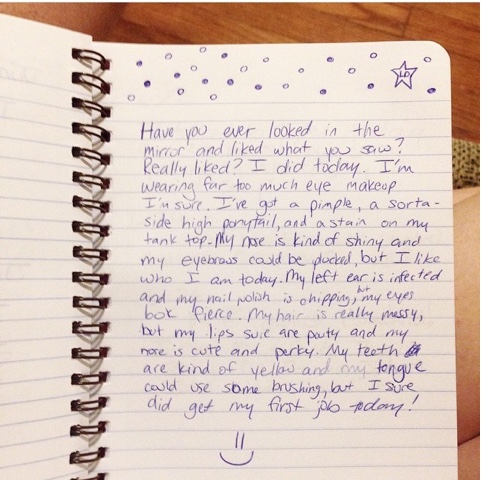 LD
Have you ever looked in the
mirror and liked what you saw?
Really liked? I did today. I'm
wearing far too much eye makeup
I'm sure. I've got a pimple, a sorta-
side high ponytail, and a stain on my
tank top. My nose is kind of shiny and
my eyebrows could be plucked, but I like
who I am today. My left ear is infected
and my nail polish is chipping, but my eyes
look fierce. My hair is really messy,
but my lips sure are pouty and my
nose is cute and perky. My teeth
are kind of yellow and my tongue
could use some brushing, but I sure
did get my first job today!